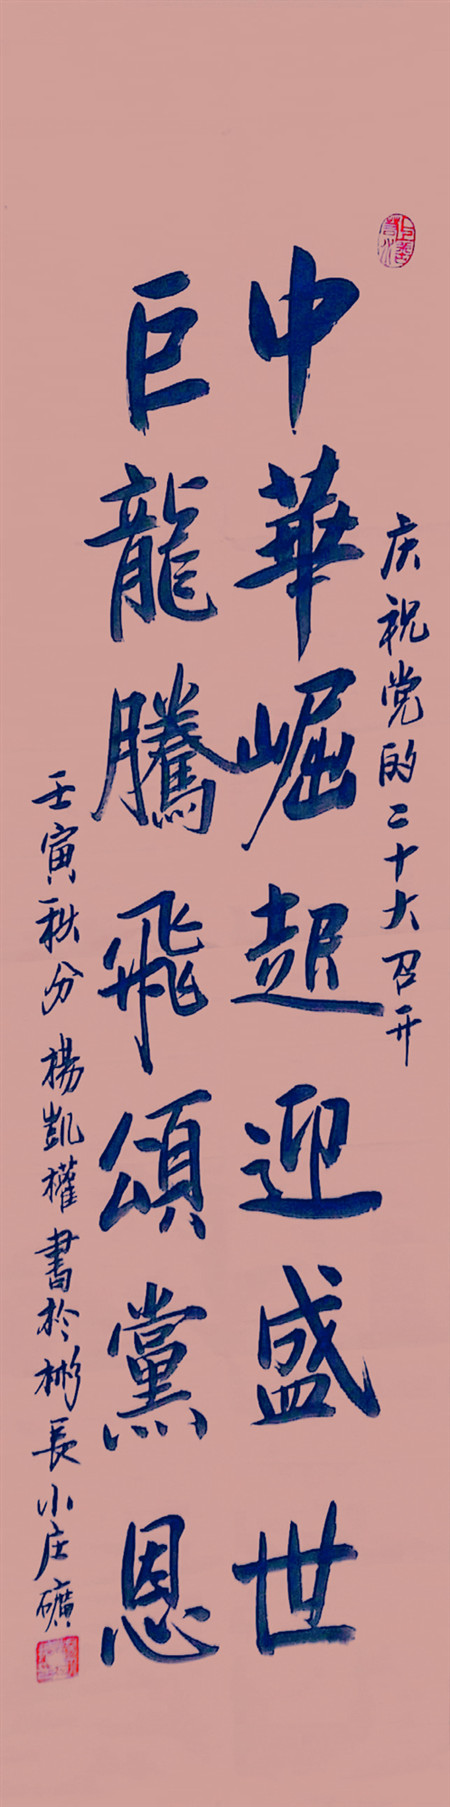 庆祝党的二十大召开
中華崛起迎盛世
巨龍騰飛頌黨恩
壬寅秋分楊凱權書於彬長小庄礦